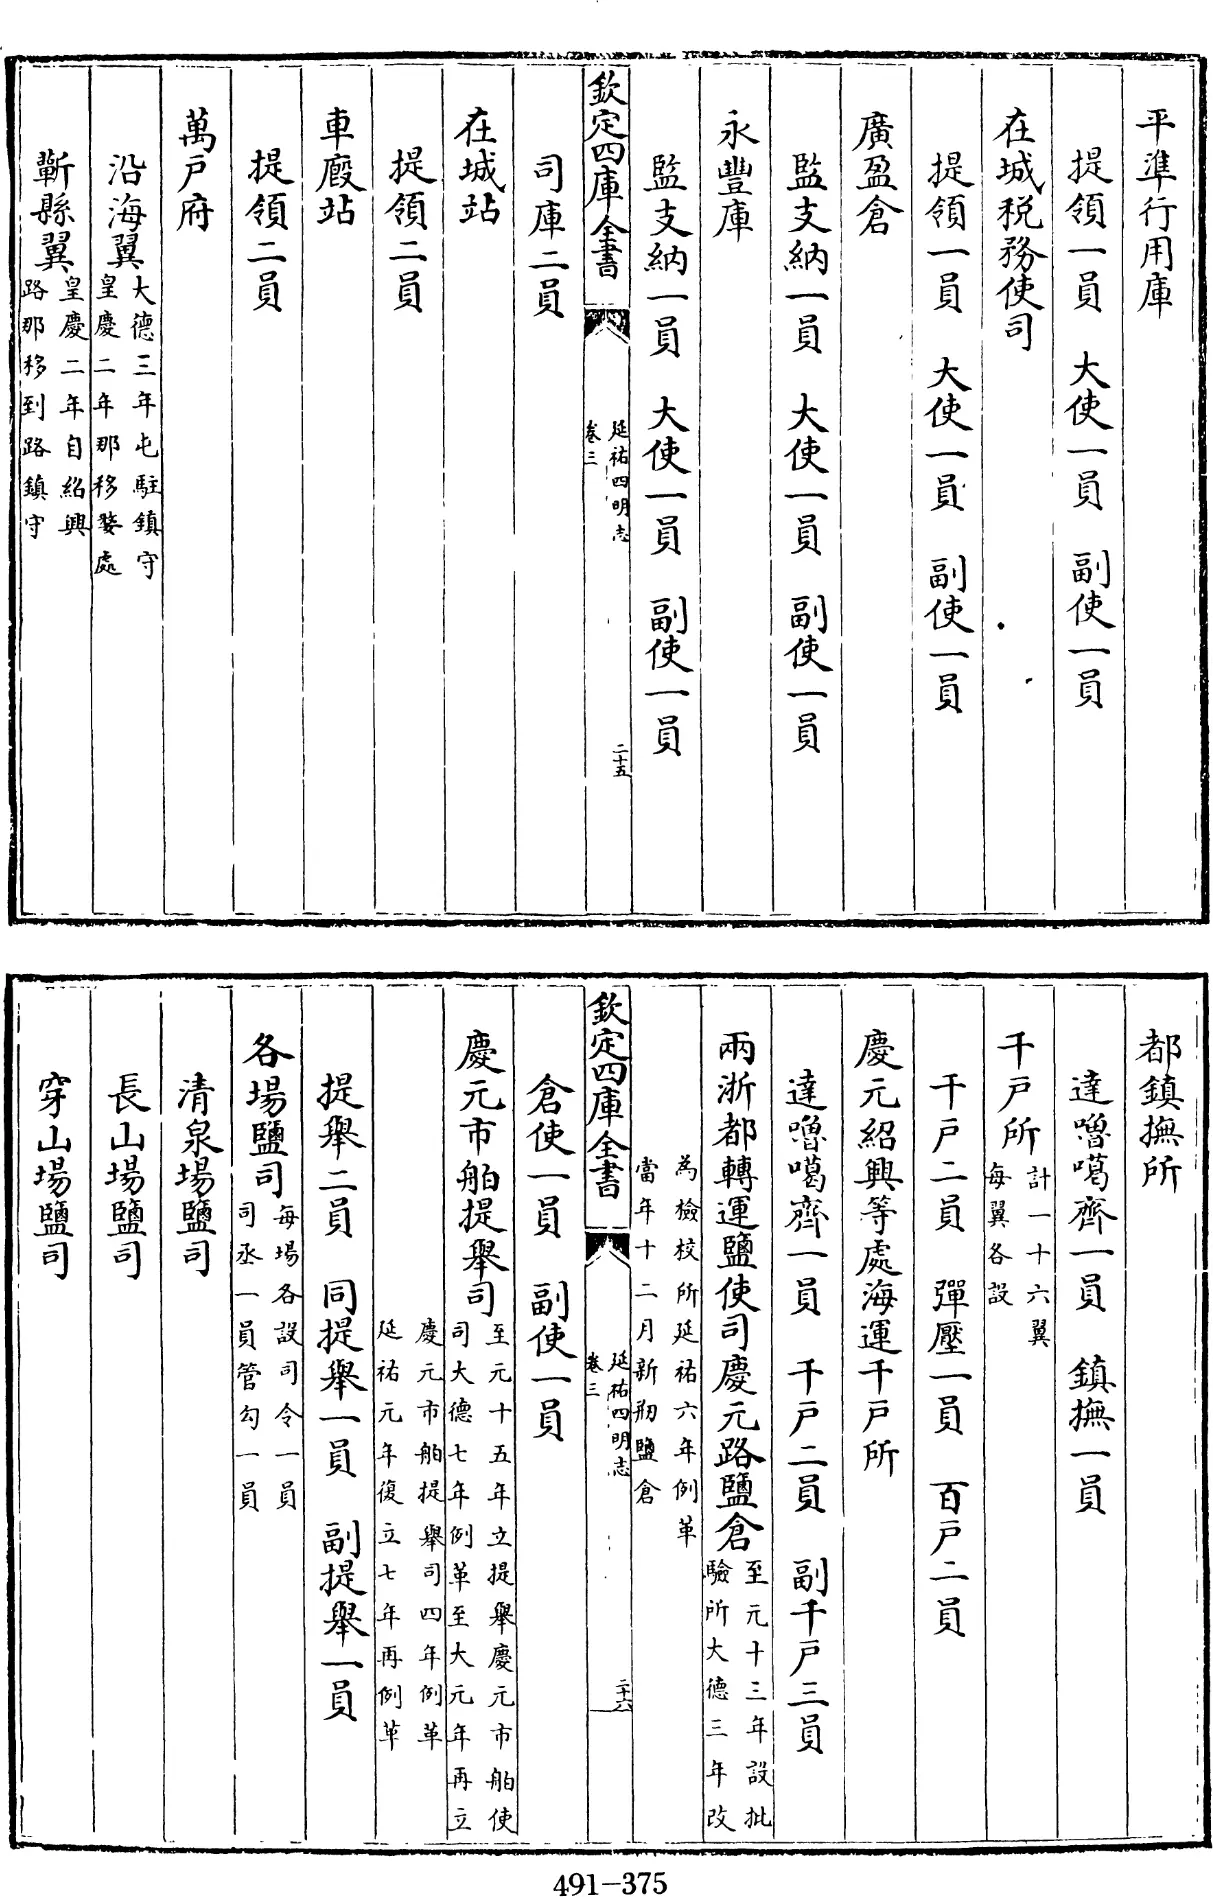 平準行用庫
提領一員　大使一員　副使一員
在城稅務使司
提領一員　大使一員　副使一員
廣盈倉
監支納一員　大使一員　副使一員
永豐庫
監支納一員　大使一員　副使一員
欽定四庫全書
延祐四明志
卷三
二十五
司庫二員
在城站
提領二員
車廄站
提領二員
萬戶府
沿海翼
大德三年屯駐鎮守
皇慶二年那移婺處
蘄縣翼
皇慶二年自紹興
路那移到路鎮守
都鎮撫所
達嚕噶齊一員　鎮撫一員
千戶所
計一十六翼
每翼各設
千戶二員　彈壓一員　百戶二員
慶元紹興等處海運千戶所
達嚕噶齊一員　千戶二員　副千戶三員
兩浙都轉運鹽使司慶元路鹽倉
至元十三年設批
驗所大德三年改
為檢校所延祐六年例革
當年十二月新刱鹽倉
欽定四庫全書
延祐四明志
卷三
二十六
倉使一員　副使一員
慶元市舶提舉司
至元十五年立提舉慶元市舶使
司大德七年例革至大元年再立
慶元市舶提舉司四年例革
延祐元年復立七年再例革
提舉二員　同提舉一員　副提舉一員
各場鹽司
每場各設司令一員
司丞一員管勾一員
清泉場鹽司
長山場鹽司
穿山場鹽司
491-375